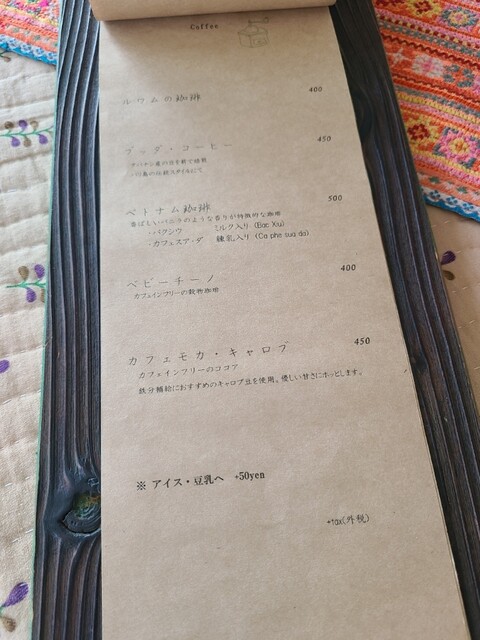 Coffee
ルワムの珈琲 400
ブッダ・コーヒー 450
バリ島の伝統スタイルにて
ベトナム珈琲 500
香ばしいバニラのような香りが特徴的な珈琲
・バクシウ ミルク入り (Bac Xiu)
・カフェスア・ダ 練乳入り (Ca phe sua da)
ベビーチーノ 400
カフェインフリーの穀物珈琲
カフェモカ・キャロブ 450
カフェインフリーのココア
鉄分補給におすすめのキャロブ豆を使用。優しい甘さにホッとします。
※ アイス・豆乳へ +50yen
+tax(外税)